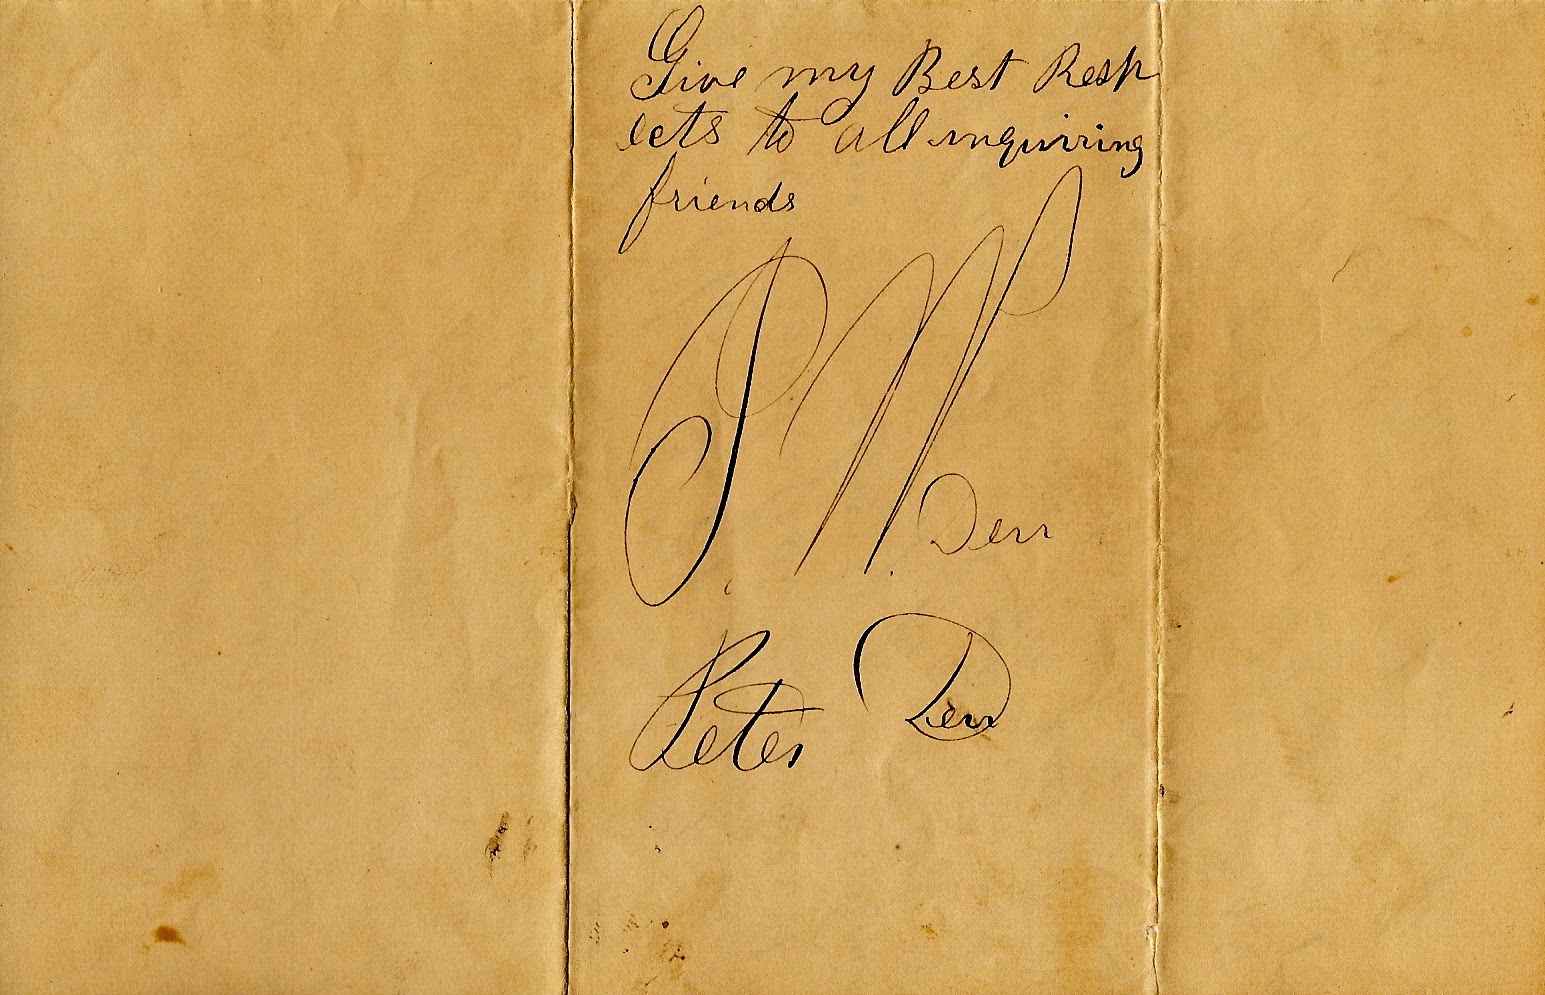 Give my Best Resp
ects to all inquiring
friends
P. W. Derr
Peter Derr